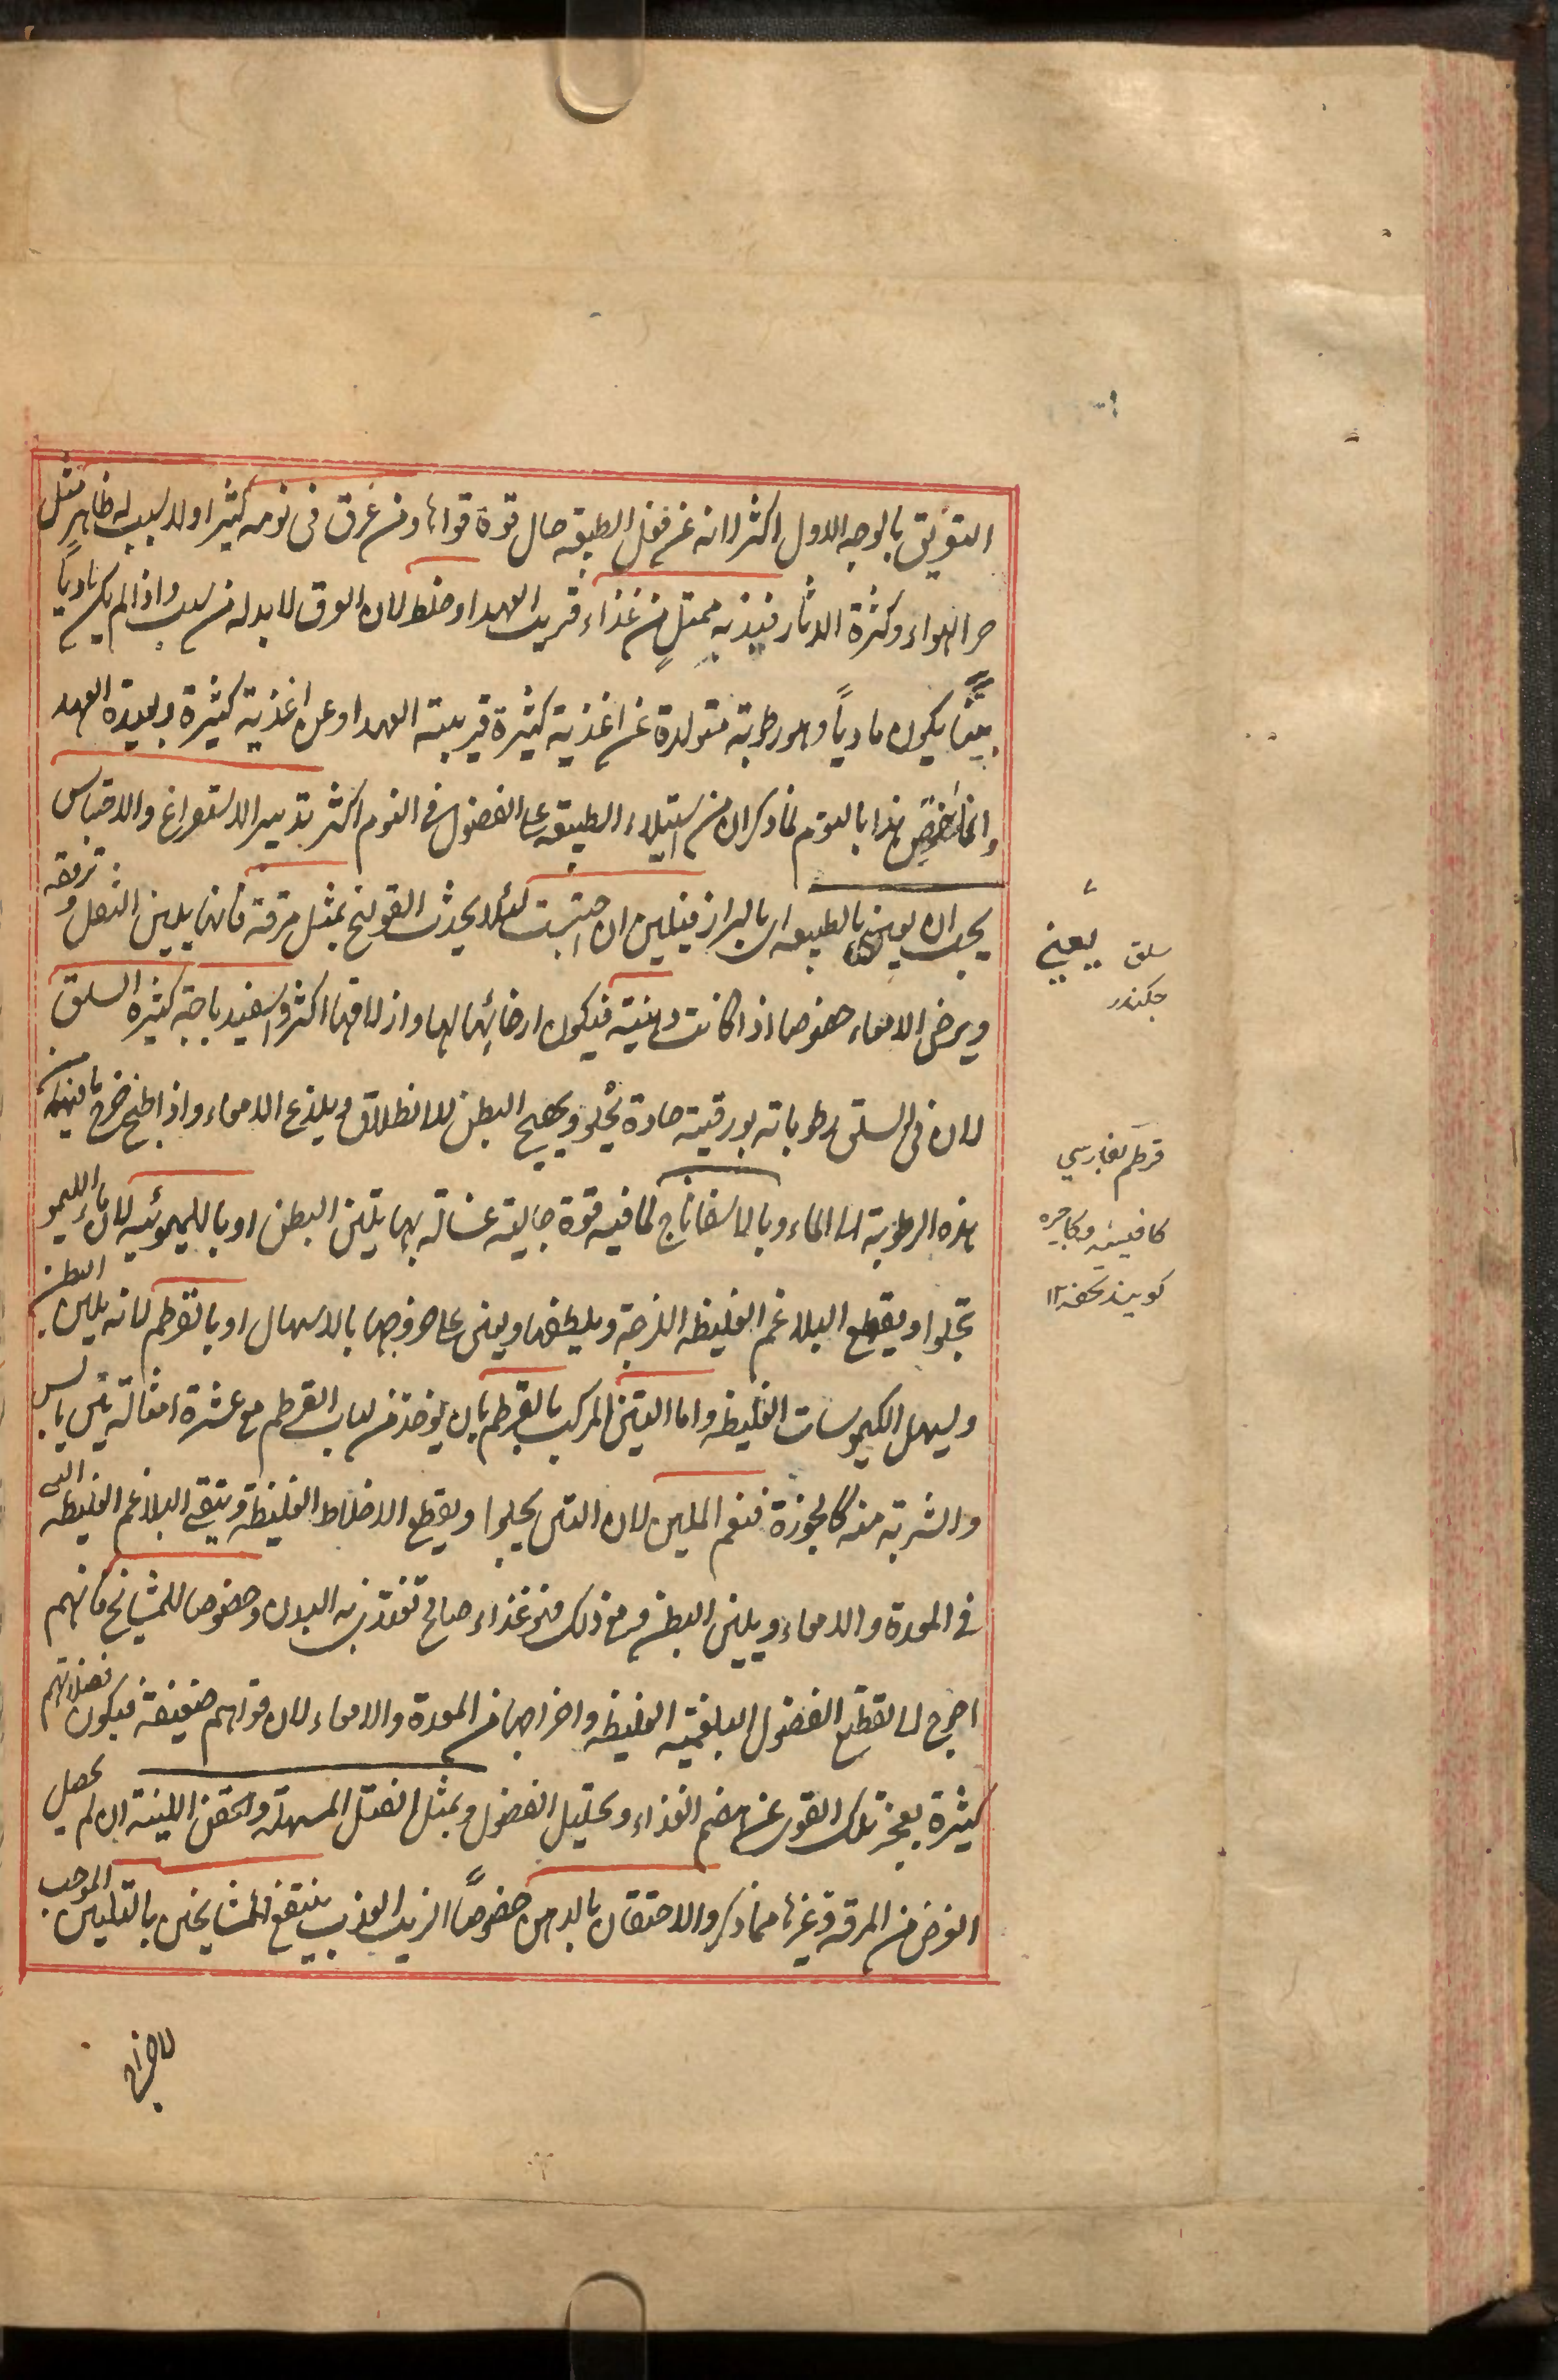 التعريق بالوجه الاول اكثر لانه عن فعل الطبيعة حال قوة قواها ومن عرق فى نومه كثيرا ولا سبب له ظاهر مثل
حر الهواء وكثرة الدثار فبدنه ممتلٍ من غذاء قريب العهد او خلط لان العرق لا بد له من سبب واذا لم يكن باديا
بيّنا يكون ماديا وهو رطوبة متولدة عن اغذية كثيرة قريبة العهد او عن اغذية كثيرة بعيدة العهد
وانما خص هذا بالنوم لما ذكر ان من استيلاء الطبيعة على الفضول فى النوم اكثر تدبير الاستفراغ والاحتباس
يجب ان يعنى بالطبيعة اى بالبراز فيلين ان احتبست لئلا يحدث القولنج بمثل مرقة فانها يلين الثفل وتزلقه
ويرخى الامعاء خصوصا اذا كانت دهنية فيكون ارخائها لها وازلاقها اكثر واسفيدباجة كثيرة السلق
لان فى السلق رطوباته بورقية حادة يجلو ويهيج البطن للانطلاق ويلذع الامعاء واذا طبخ خرج ما فيه من
هذه الرطوبة الى الماء وبالاسفاناج لما فيه قوة جالية غسالة بها يلين البطن او بالليموئية لان ماء الليمو
يجلو او يقطع البلاغم الغليظة اللزجة ويلطفها ويعين على خروجها بالاسهال او بالقرطم لانه يلين البطن
ويسهل الكيموسات الغليظة واما التين المركب بالقرطم بان يؤخذ من لباب القرطم مع عشرة امثاله تين يابس
والشربة منه كالجوزة فنعم الملين لان التين يجلوا ويقطع الاخلاط الغليظة وينقى البلاغم الغليظة التى
فى المعدة والامعاء ويلين البطن ومع ذلك فهو غذاء صالح تغتذى به البدن وخصوصا للمشائخ فانهم
احوج الى تقطيع الفضول البلغمية الغليظة واخراجها من المعدة والامعاء لان قواهم ضعيفة فيكون فضلاتهم
كثيرة بعجز تلك القوى عن هضم الغذاء وتحليل الفضول وبمثل الفتل المسهلة والحقن اللينة ان لم يحصل
الغرض من المرقة وغيرها مما ذكر والاحتقان بالدهن خصوصًا الزيت العذب ينتفع المشايخ به بالتليين الموجب
لاخراج
يعنى
سلق
چكندر
قرطم بفارسي
كافيشه وكاجره
كويند تحفه ١٢